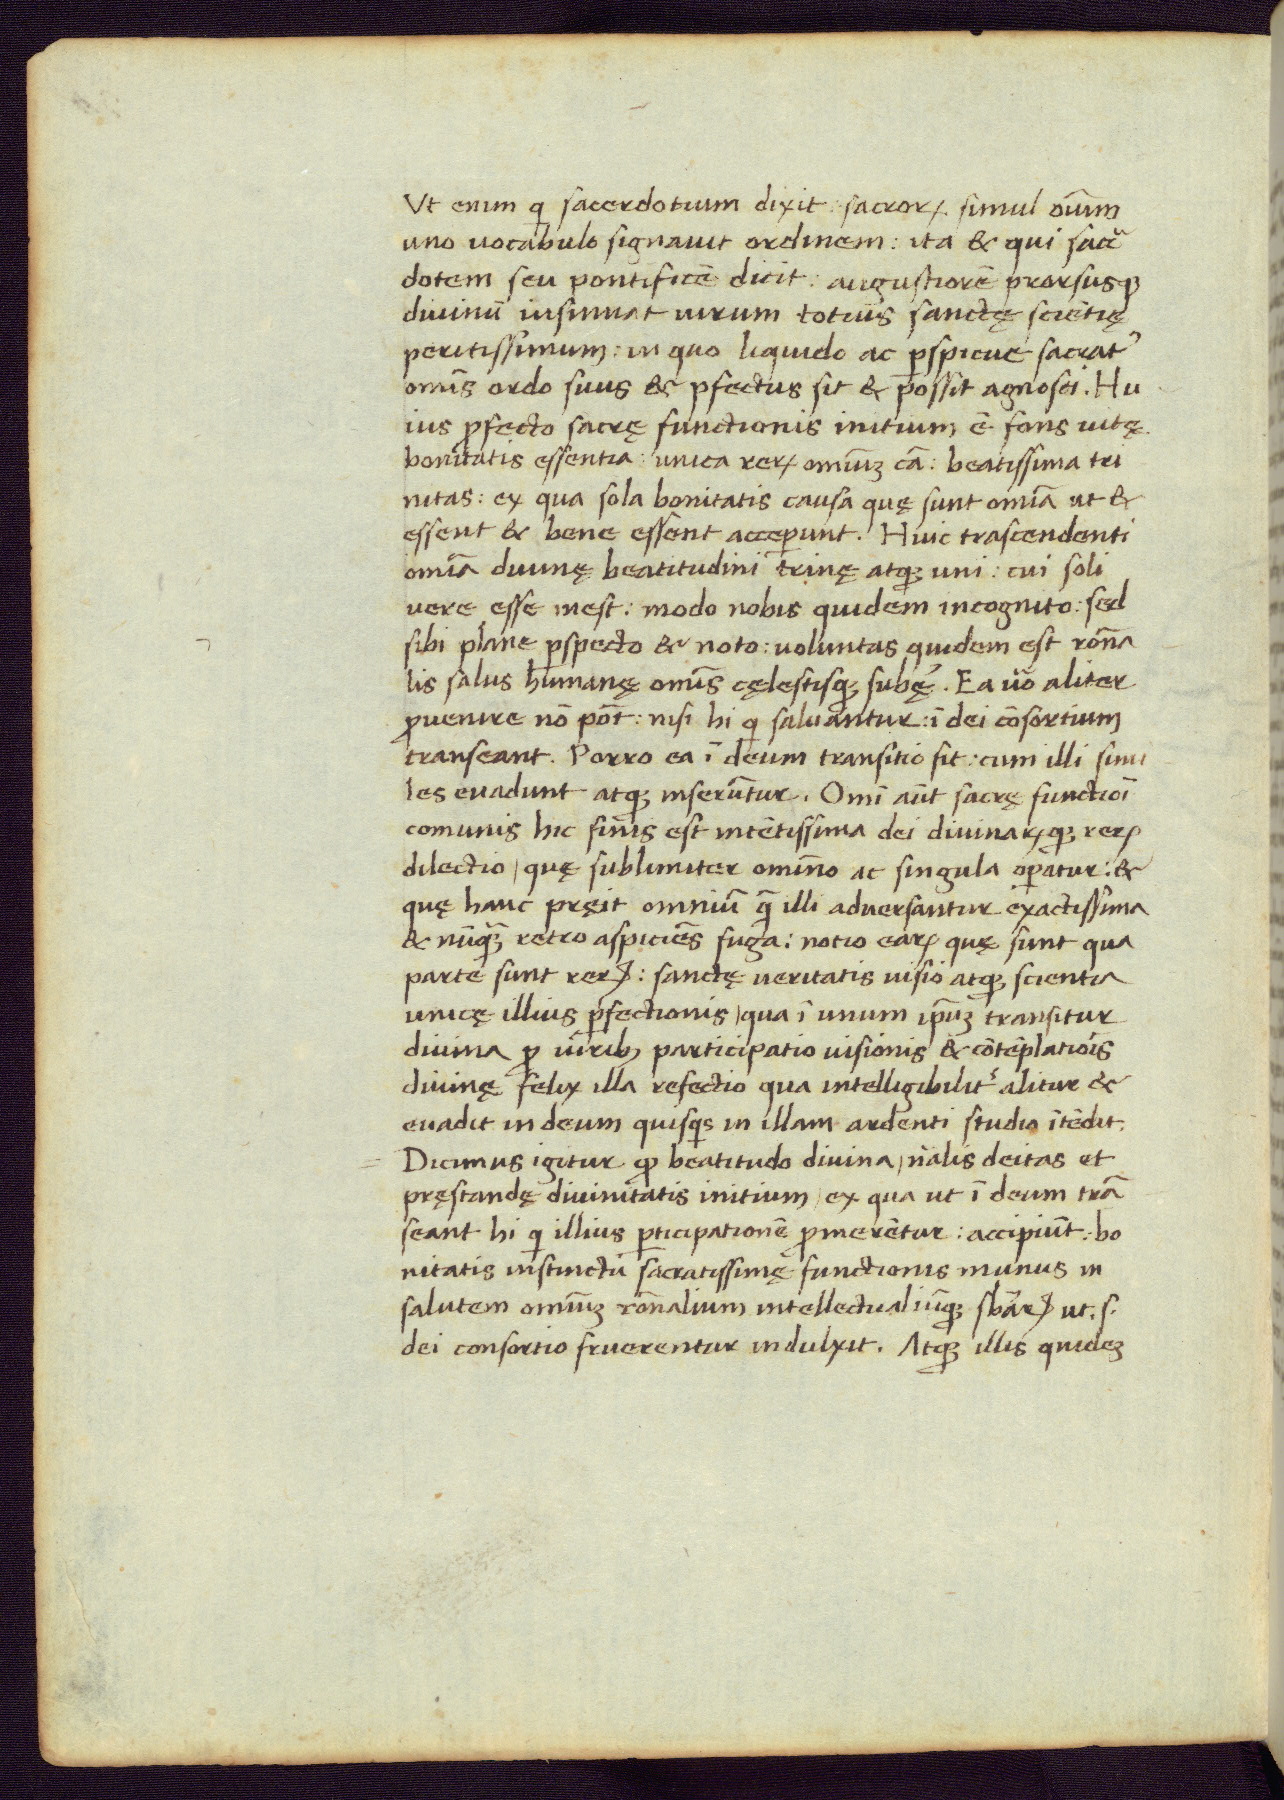 Vt enim q sacerdotium dixit: sacrorꝝ simul oīum
uno uocabulo signauit ordinem: ita & qui sacer̄
dotem seu pontificē dicit: augustiorē prorsusq;
diuinū insinuat uirum totius sanctę sciētię
peritissimum: in quo liquido ac ꝑspicue sacratꝰ
omīs ordo suus & ꝑfectus sit & possit agnosci. Hu
ius ꝓfecto sacrę functionis initium ē fons uitę
bonitatis essentia: unica rerꝝ omiūꝫ cā: beatissima tri
nitas: ex qua sola bonitatis causa quę sunt omīa ut &
essent & bene essent acceꝑunt. Huic trāscendenti
omīa diuinę beatitudini trinę atqꝫ uni: cui soli
uere esse inest: modo nobis quidem incognito: sed
sibi plane ꝑspecto & noto: uoluntas quidem est rōna
lis salus humanę omīs cęlestisqꝫ subę̄. Ea ūo aliter
ꝓuenire nō pōt: nisi hi q saluantur: ī dei cōsortium
transeant. Porro ea ī deum transitio fit: cum illi simi
les euadunt atqꝫ inserūtur. Omī aūt sacrę functioī
comunis hic finis est intētissima dei diuinarꝝqꝫ rerꝝ
dilectio, quę sublimiter omīno ac singula oꝑatur: &
quę hanc pręit omniū q̄ illi aduersantur exactissima
& nūq̄ꝫ retro aspiciēs fuga: notio earꝝ quę sunt qua
parte sunt rerꝝ: sanctę ueritatis uisio atqꝫ scientia
unicę illius ꝑfectionis, qua ī unum ip̄uꝫ transitur
diuina ꝓ uirib; participatio uisionis & cōtēplatiōis
diuinę felix illa refectio qua intelligibilitˢ alitur &
euadit in deum quisqs in illam ardenti studio ītēdit.
Dicimus igitur q beatitudo divina, nālis deitas et
pręstandę diuinitatis initium, ex qua ut ī deum trā
seant hi q illius ꝑticipationē ꝓmerētur: accipiūt: bo
nitatis instinctū sacratissimę functionis munus in
salutem omiūꝫ rōnalium intellectualiūqꝫ sbārꝝ ut. s.
dei consortio fruerentur indulxit. Atqꝫ illis quideꝫ